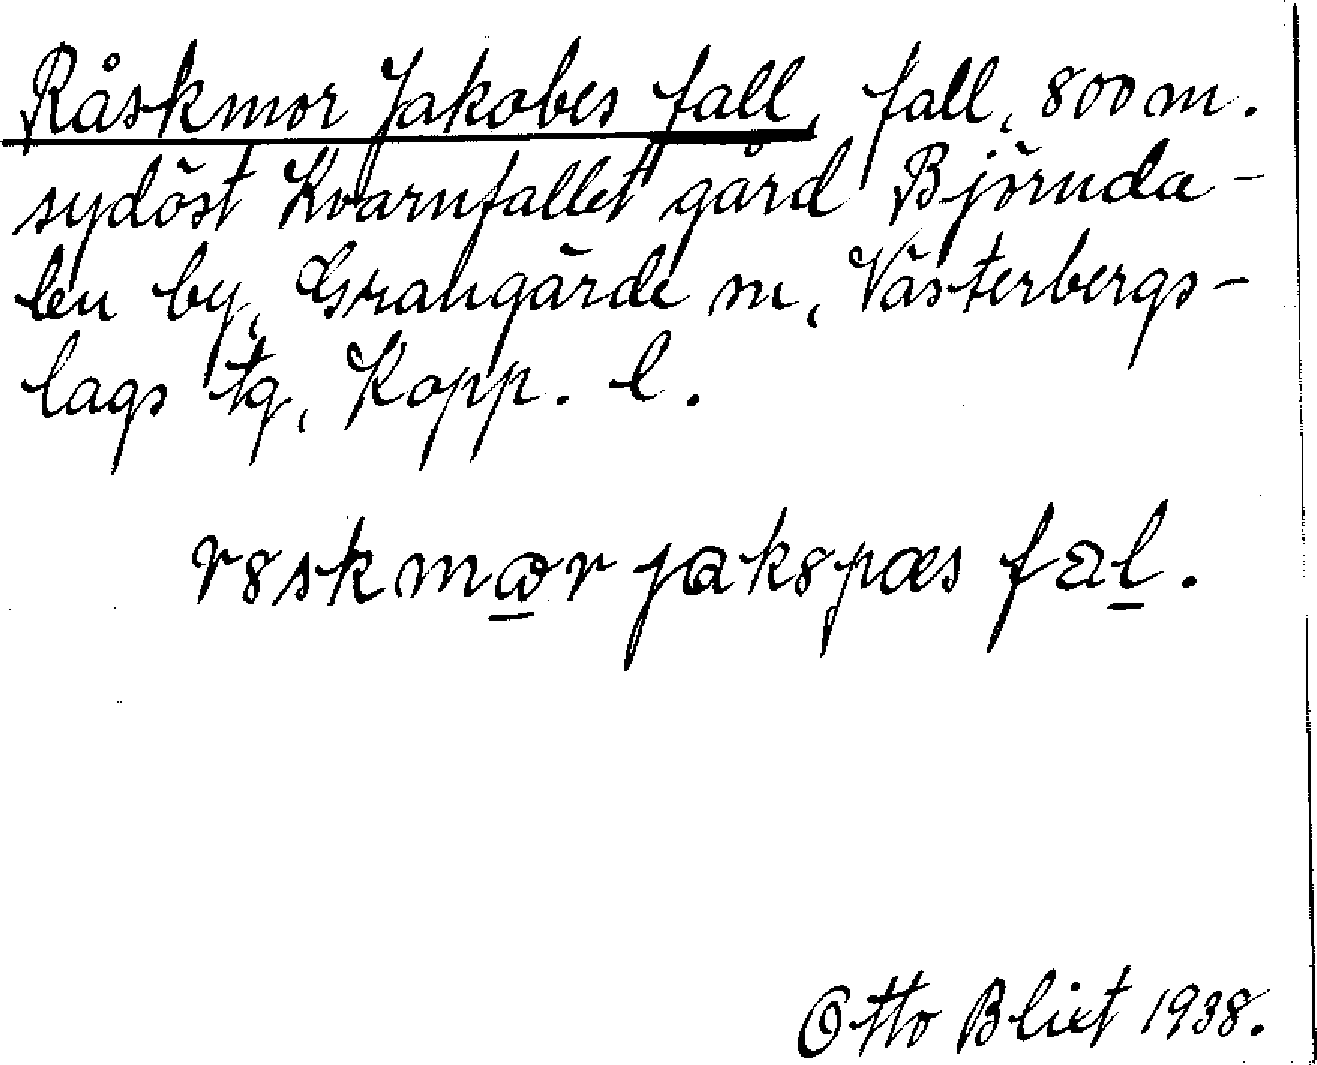 Råskmor Jakobes fall, fall, 800 m.
sydöst Kvarnfallet gård Björnda-
len by, Grangärde sn, Västerbergs-
lags tg, Kopp. l.
Otto Blixt 1938.